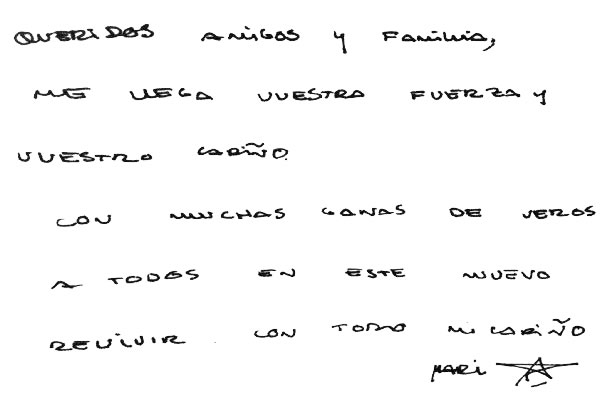 QUERIDOS AMIGOS y FAMILIA,
ME LLEGA VUESTRA FUERZA y
VUESTRO CARIÑO.
CON MUCHAS GANAS DE VEROS
A TODOS EN ESTE NUEVO
REVIVIR CON TODO MI CARIÑO
MARI